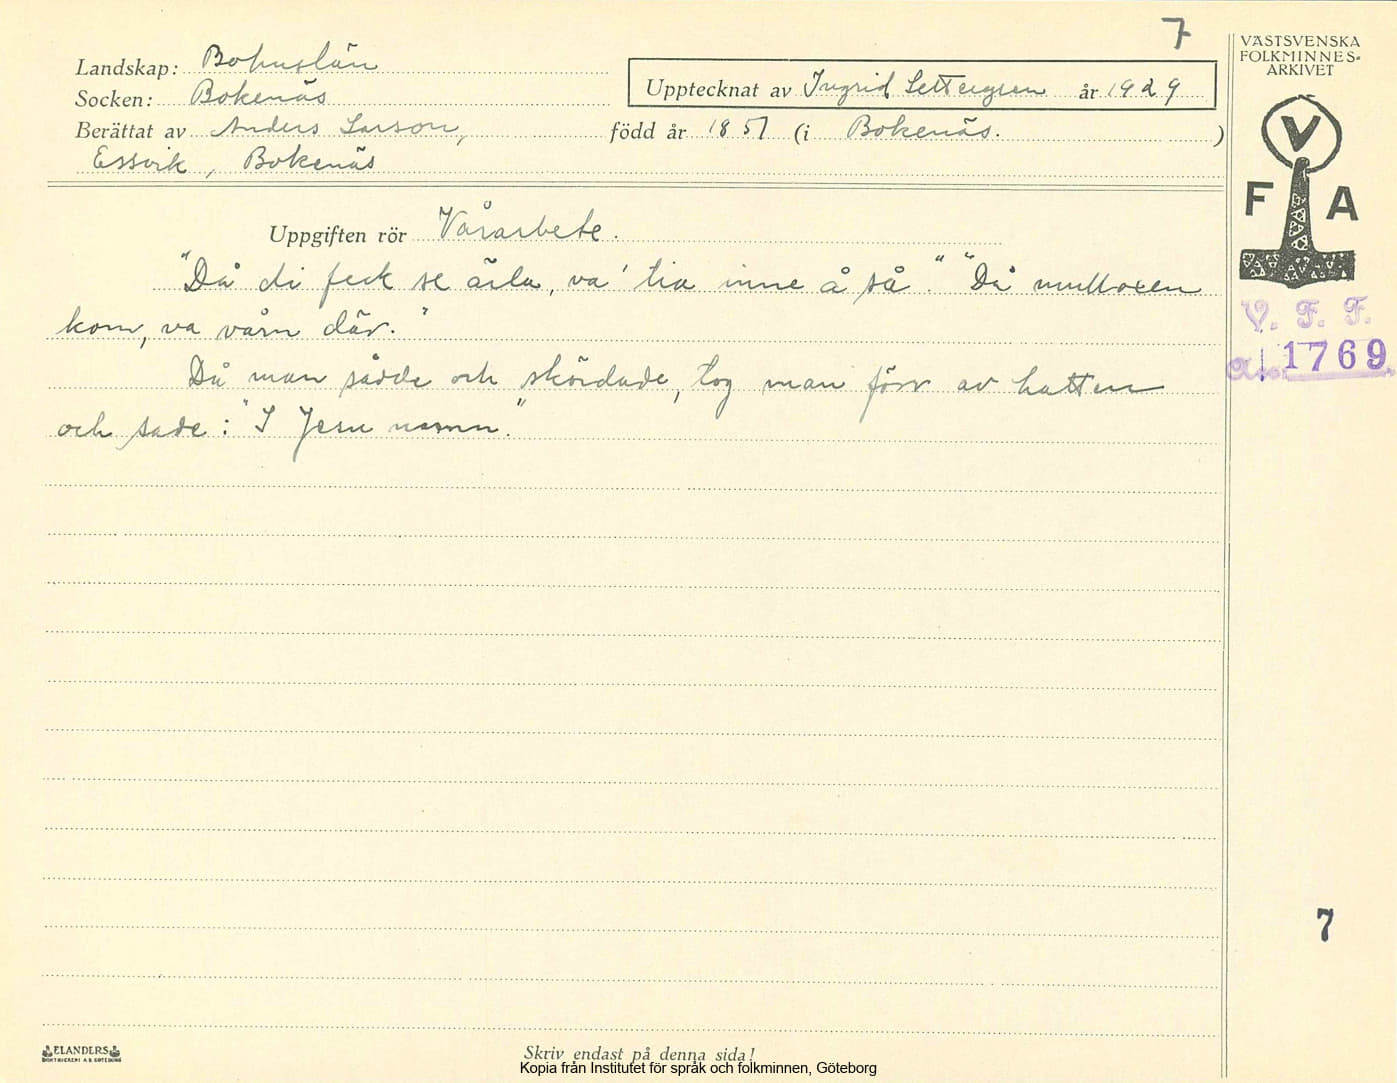 7
Landskap: Bohuslän
Socken: Bokenäs
Upptecknat av Ingrid Settergren år 1929
Berättat av Anders Larson, född år 1851 (i Bokenäs. )
Essvik, Bokenäs
Uppgiften rör Vårarbete.
"Då di feck se ärla, va' tia inne å så." "Då mulloxen
kom, va vårn där."
Då man sådde och skördade, tog man förr av hatten
och sade: "I Jesu namn."
VÄSTSVENSKA
FOLKMINNES-
ARKIVET
V
F A
V. F. F.
1769
7
ELANDERS
BOKTRYCKERI A.B. GÖTEBORG
Skriv endast på denna sida!
Kopia från Institutet för språk och folkminnen, Göteborg